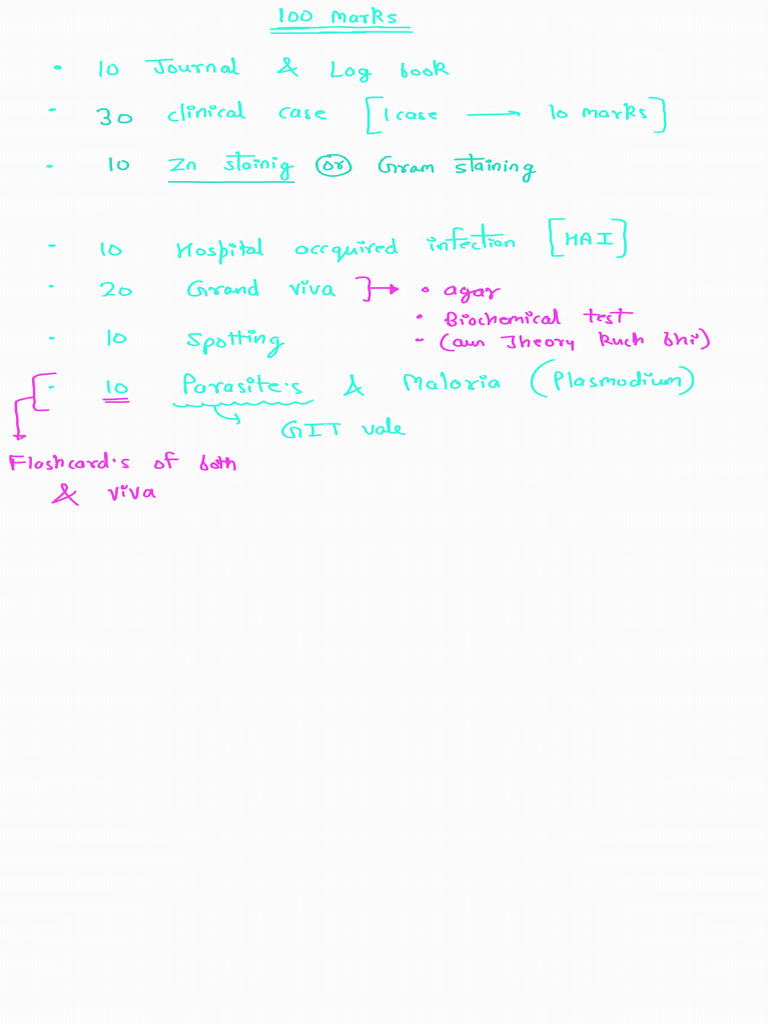 100 Marks
• 10 Journal & Log book
• 30 clinical case [1 case → 10 marks]
• 10 Zn stainig or Gram staining
• 10 Hospital accquired infection [HAI]
• 20 Grand viva } → • agar
• Biochemical test
• 10 Spotting
• (aur Theory kuch bhi)
• 10 Parasite's & Malaria (Plasmodium)
GIT vale
Flashcard's of both
& viva